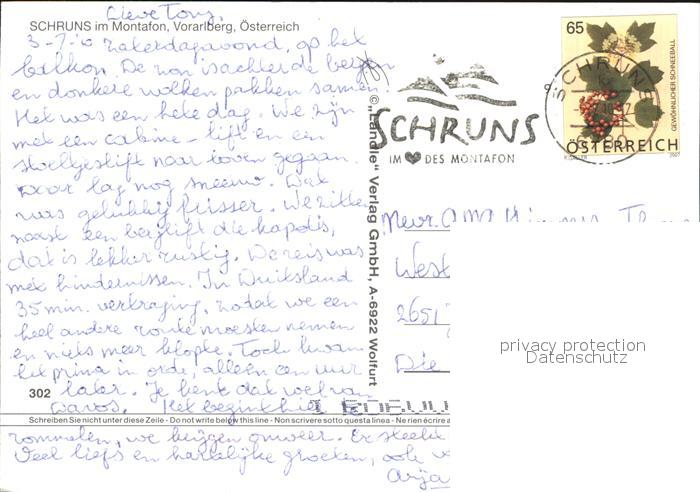 Lieve Tony,
SCHRUNS im Montafon, Vorarlberg, Österreich
3-7-'10 Zaterdagavond, op het
balkon. De zon is achter de bergen
en donkere wolken pakken samen.
Het was een hete dag. We zijn
met een cabine-lift en een
stoeltjeslift naar boven gegaan.
Daar lag nog sneeuw. Dat
was gelukkig frisser. We zitten
naast een berglift die kapot is,
dat is lekker rustig. De reis was
met hindernissen. In Duitsland
35 min. vertraging, zodat we een
heel andere route moesten nemen
en niets meer klopte. Toch kwam
het prima in orde, alleen een uur
later. Je kent dat wel van
Davos. Het begint hier te
302
Schreiben Sie nicht unter diese Zeile - Do not write below this line - Non scrivere sotto questa linea - Ne rien écrire a
rommelen, we krijgen onweer. Er steekt
Veel liefs en hartelijke groeten, ook v
Arja
© „Ländle" Verlag GmbH, A-6922 Wolfurt
SCHRUNS
IM DES MONTAFON
65
GEWÖHNLICHER SCHNEEBALL
ÖSTERREICH
2007
SCHRUNS
Mevr.
West
2651
Die
privacy protection
Datenschutz